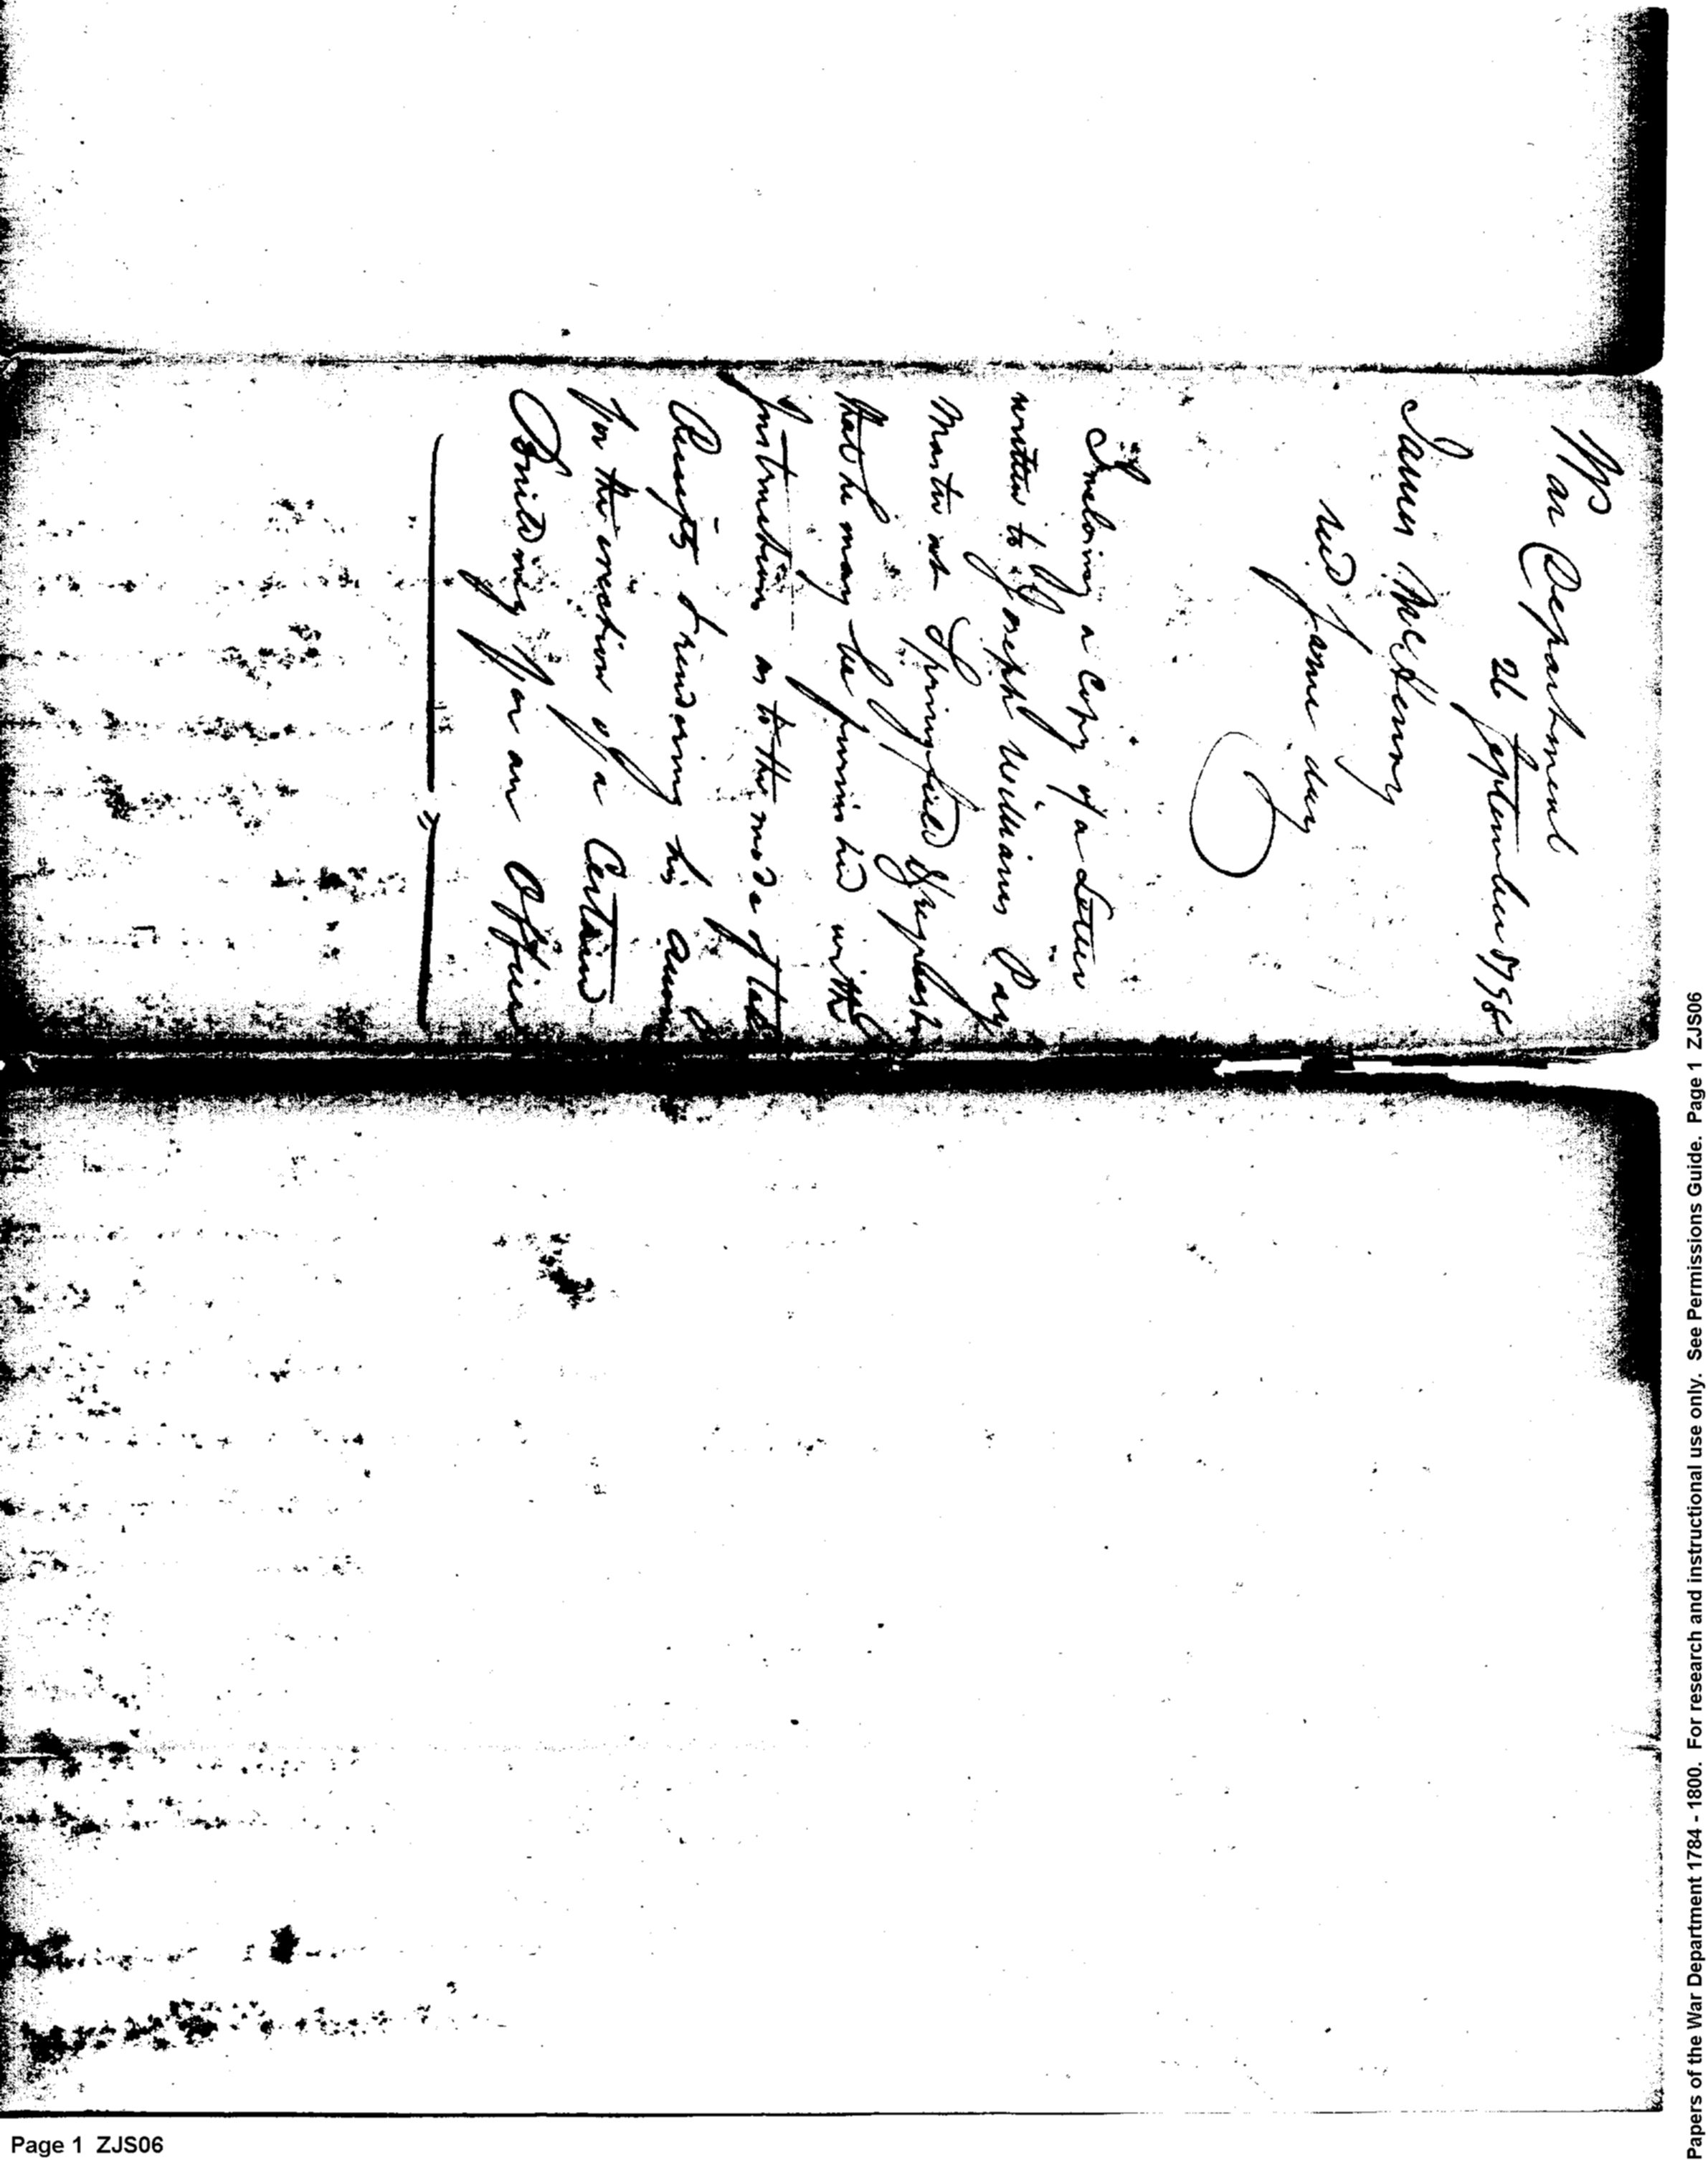 War Department
26 September 1798
James McHenry
recd same day
Inclosing a Copy of a Letter
written to Joseph Williams Pay
Master at Springfield &
that he may be furnished with
Instructions as to the mode of
Receipts & rendering his
for the erection of a Certain
Building for an Office
Page 1 ZJS06
Papers of the War Department 1784 - 1800. For research and instructional use only. See Permissions Guide. Page 1 ZJS06